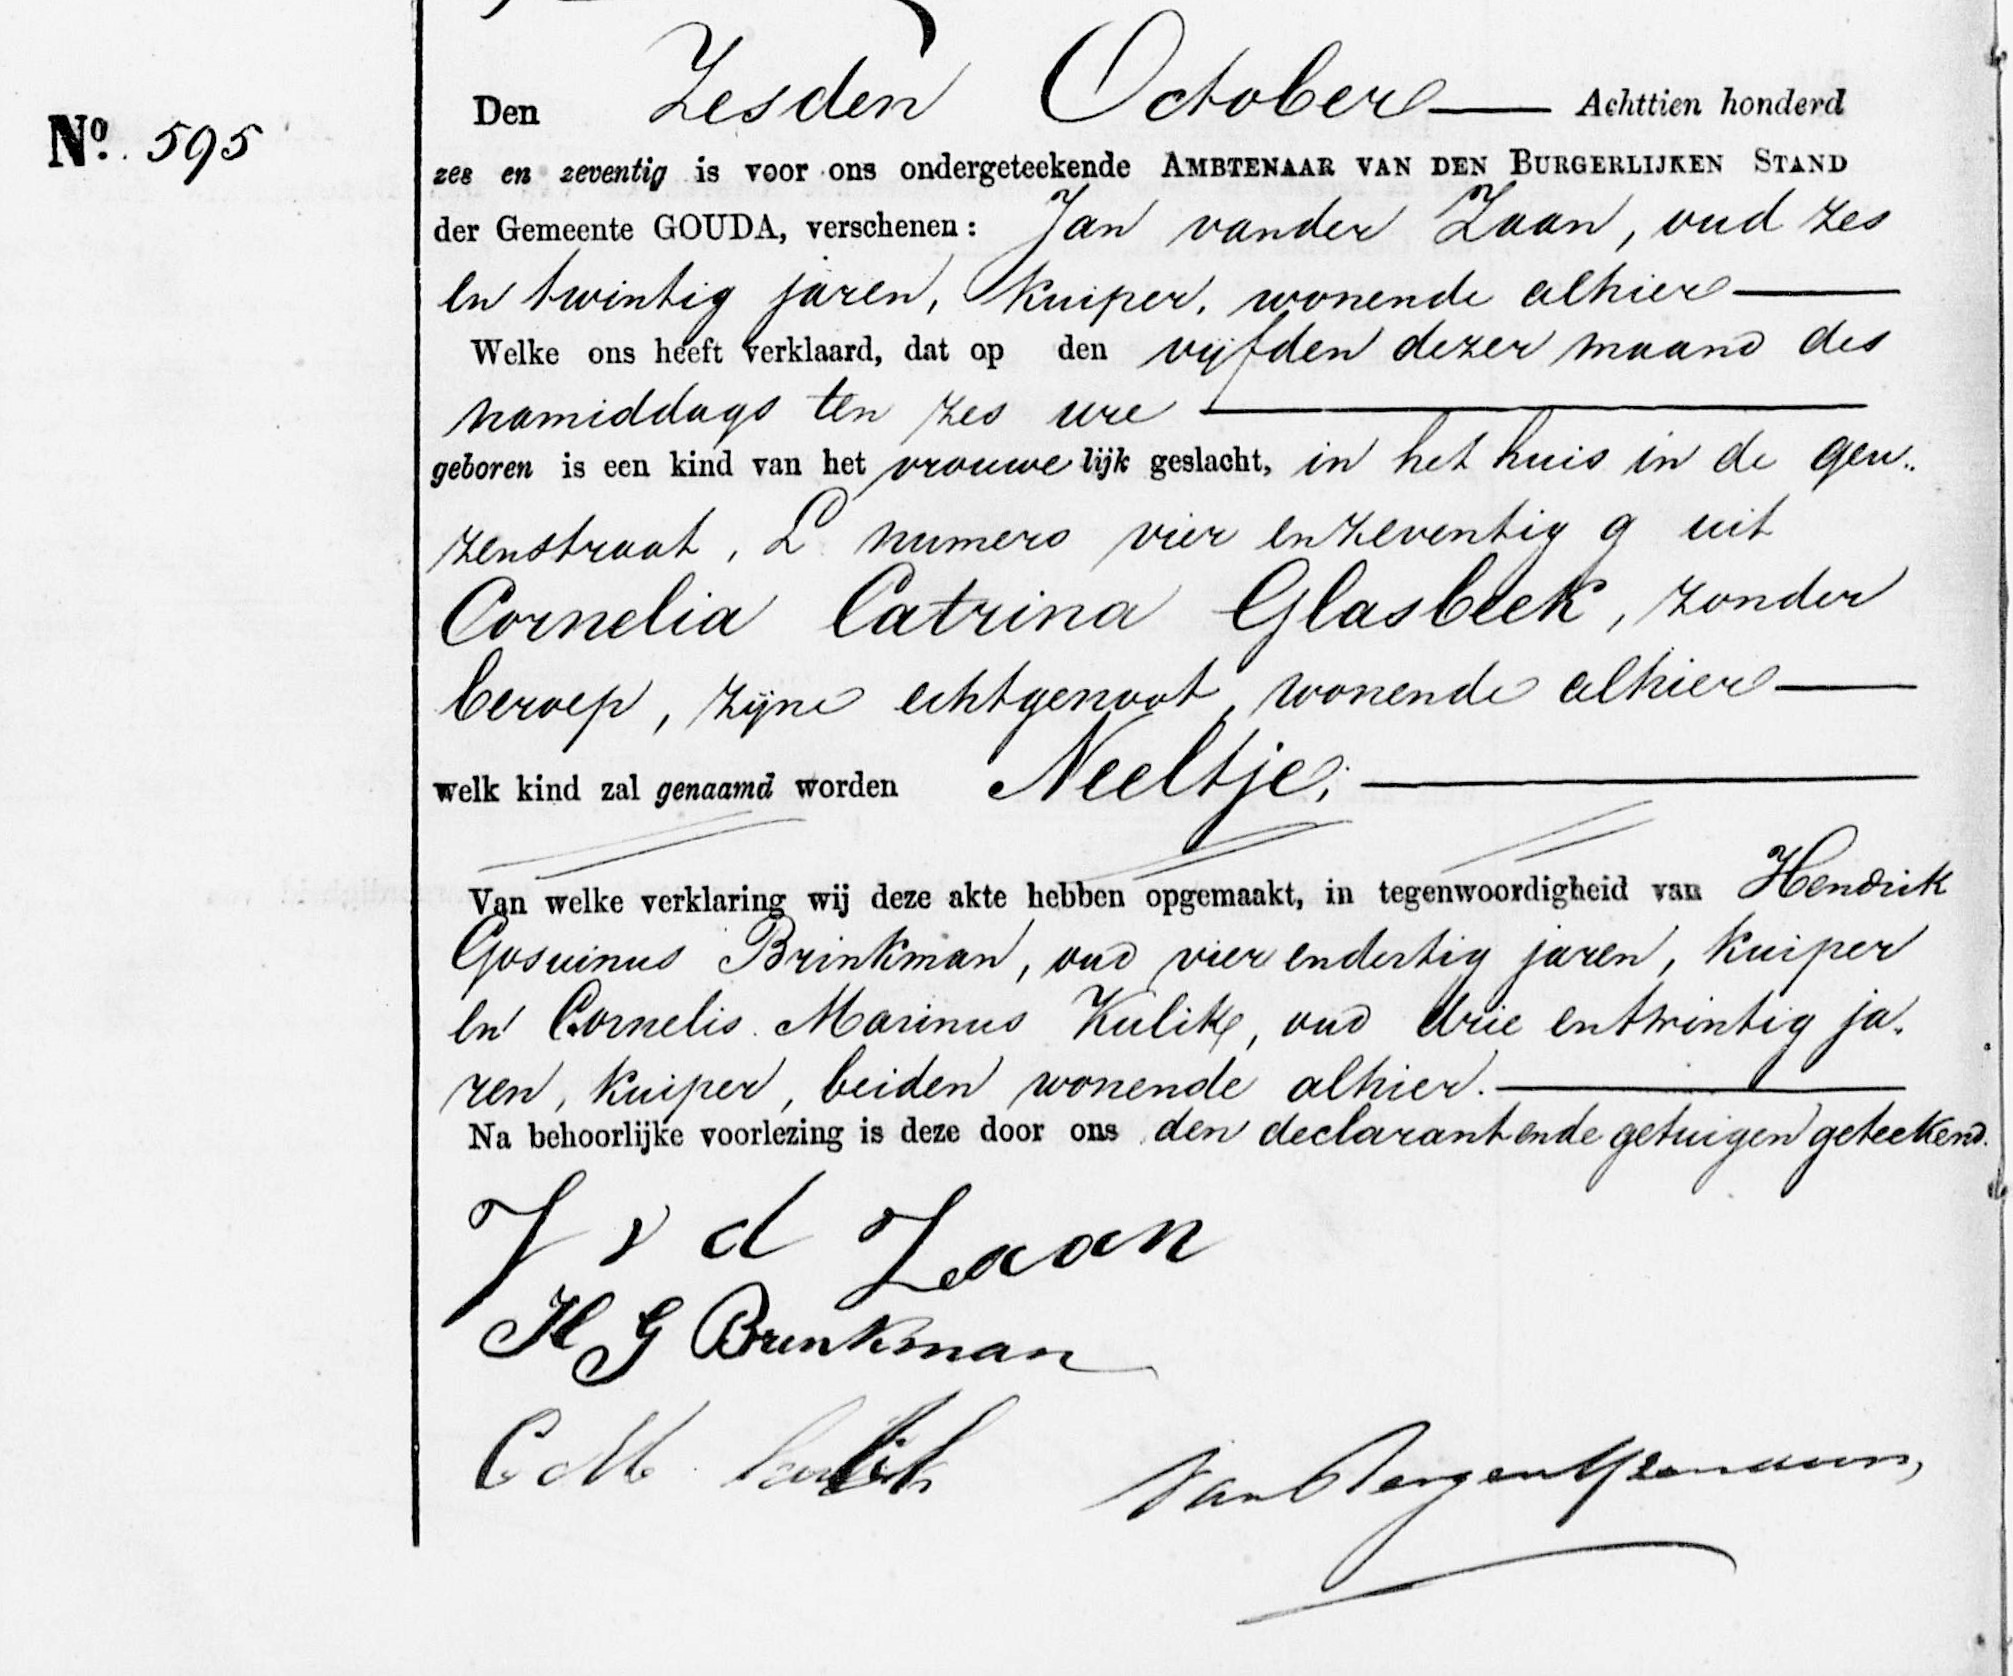 Nº. 595
Den Zesden October Achttien honderd
zes en zeventig is voor ons ondergeteekende AMBTENAAR VAN DEN BURGERLIJKEN STAND
der Gemeente GOUDA, verschenen: Jan vander Zaan, oud zes
en twintig jaren, Kuiper, wonende alhier
Welke ons heeft verklaard, dat op den vijfden dezer maand des
namiddags ten zes ure
geboren is een kind van het vrouwelijk geslacht, in het huis in de geu„
zenstraat, L numero vier enzeventig g uit
Cornelia Catrina Glasbeek, zonder
beroep, zijne echtgenoot, wonende alhier
welk kind zal genaamd worden Neeltje;
Van welke verklaring wij deze akte hebben opgemaakt, in tegenwoordigheid van Hendrik
Gosuinus Brinkman, oud vier endertig jaren, Kuiper
en Cornelis Marinus Kulik, oud drie entwintig ja„
ren, Kuiper, beiden wonende alhier.
Na behoorlijke voorlezing is deze door ons den declarant ende getuigen geteekend.
J v d Zaan
H G Brinkman
C M Kulik
Van Bergen IJzendoorn